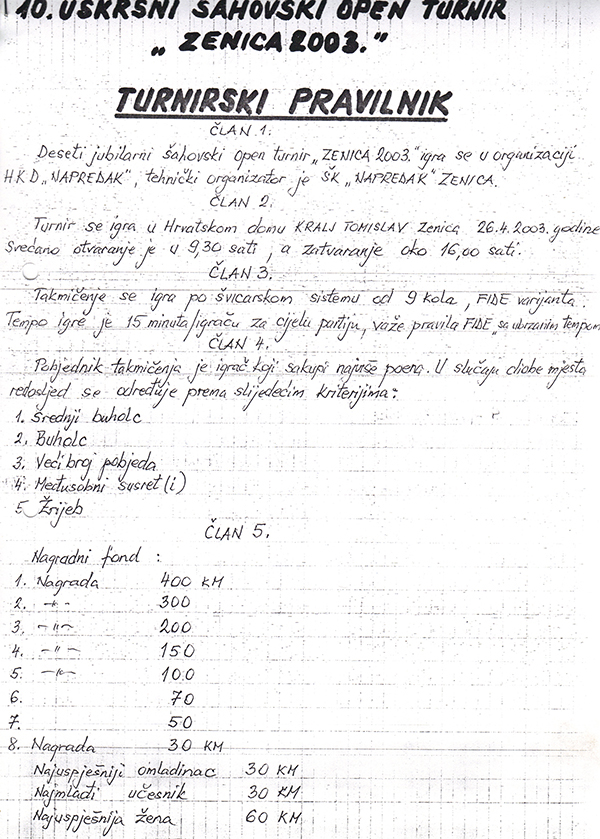 10. USKRSNI ŠAHOVSKI OPEN TURNIR
„ ZENICA 2003."
TURNIRSKI PRAVILNIK
ČLAN 1.
Deseti jubilarni šahovski open turnir „ZENICA 2003." igra se u organizaciji
HKD „NAPREDAK", tehnički organizator je ŠK „NAPREDAK" ZENICA.
ČLAN 2.
Turnir se igra u Hrvatskom domu KRALJ TOMISLAV Zenica 26.4.2003. godine
Svečano otvaranje je u 9,30 sati, a zatvaranje oko 16,00 sati.
ČLAN 3.
Takmičenje se igra po švicarskom sistemu od 9 kola, FIDE varijanta.
Tempo igre je 15 minuta/igraču za cijelu partiju, važe pravila FIDE „sa ubrzanim tempom
ČLAN 4.
Pobjednik takmičenja je igrač koji sakupi najviše poena. U slučaju diobe mjesta
redosljed se određuje prema slijedećim kriterijima:
1. Srednji buholc
2. Buholc
3. Veći broj pobjeda
4. Međusobni susret (i)
5. Žrijeb
ČLAN 5.
Nagradni fond :
1. Nagrada 400 KM
2. -"- 300
3. -"- 200
4. -"- 150
5. -"- 100
6. 70
7. 50
8. Nagrada 30 KM
Najuspješniji omladinac 30 KM
Najmlađi učesnik 30 KM
Najuspješnija žena 60 KM